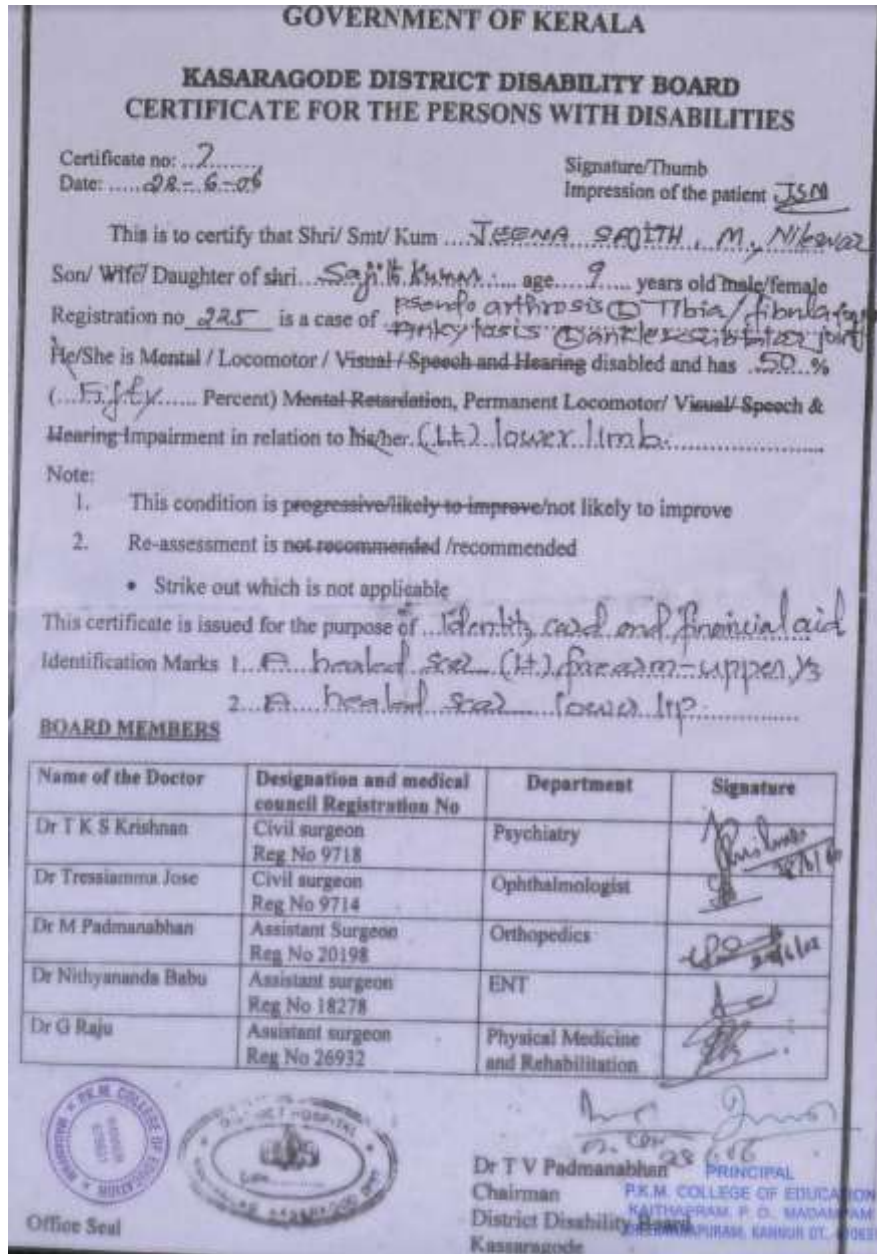 GOVERNMENT OF KERALA
KASARAGODE DISTRICT DISABILITY BOARD
CERTIFICATE FOR THE PERSONS WITH DISABILITIES
Certificate no: ..7........
Date: .....28-6-06
Signature/Thumb
Impression of the patient JSM
This is to certify that Shri/ Smt/ Kum ....JEENA SAJITH, M,
Son/ Wife/ Daughter of shri....Sajith Kumar..... age.....9..... years old male/female
Registration no 225 is a case of Pseudo arthrosis (L) Tibia/fibula
(L) ankle joint
He/She is Mental / Locomotor / Visual / Speech and Hearing disabled and has ..50..%
(....Fifty...... Percent) Mental Retardation, Permanent Locomotor/ Visual/ Speech &
Hearing Impairment in relation to his/her.(Lt) lower limb.
Note:
1. This condition is progressive/likely to improve/not likely to improve
2. Re-assessment is not recommended /recommended
• Strike out which is not applicable
This certificate is issued for the purpose of ..Identity card and financial aid
Identification Marks 1..A healed scar (Lt) forearm-upper 1/3
2..A healed scar lower lip
BOARD MEMBERS
Name of the Doctor Designation and medical council Registration No Department Signature
Dr T K S Krishnan Civil surgeon Reg No 9718 Psychiatry
Dr Tressiamma Jose Civil surgeon Reg No 9714 Ophthalmologist
Dr M Padmanabhan Assistant Surgeon Reg No 20198 Orthopedics
Dr Nithyananda Babu Assistant surgeon Reg No 18278 ENT
Dr G Raju Assistant surgeon Reg No 26932 Physical Medicine and Rehabilitation
P.K.M. COLLEGE OF EDUCATION
DISTRICT HOSPITAL
Dr T V Padmanabhan
Chairman
District Disability Board
Kassaragode
PRINCIPAL
P.K.M. COLLEGE OF EDUCATION
KAITHAPRAM P. O., MADAMPAM
KANNUR DT.
Office Seal